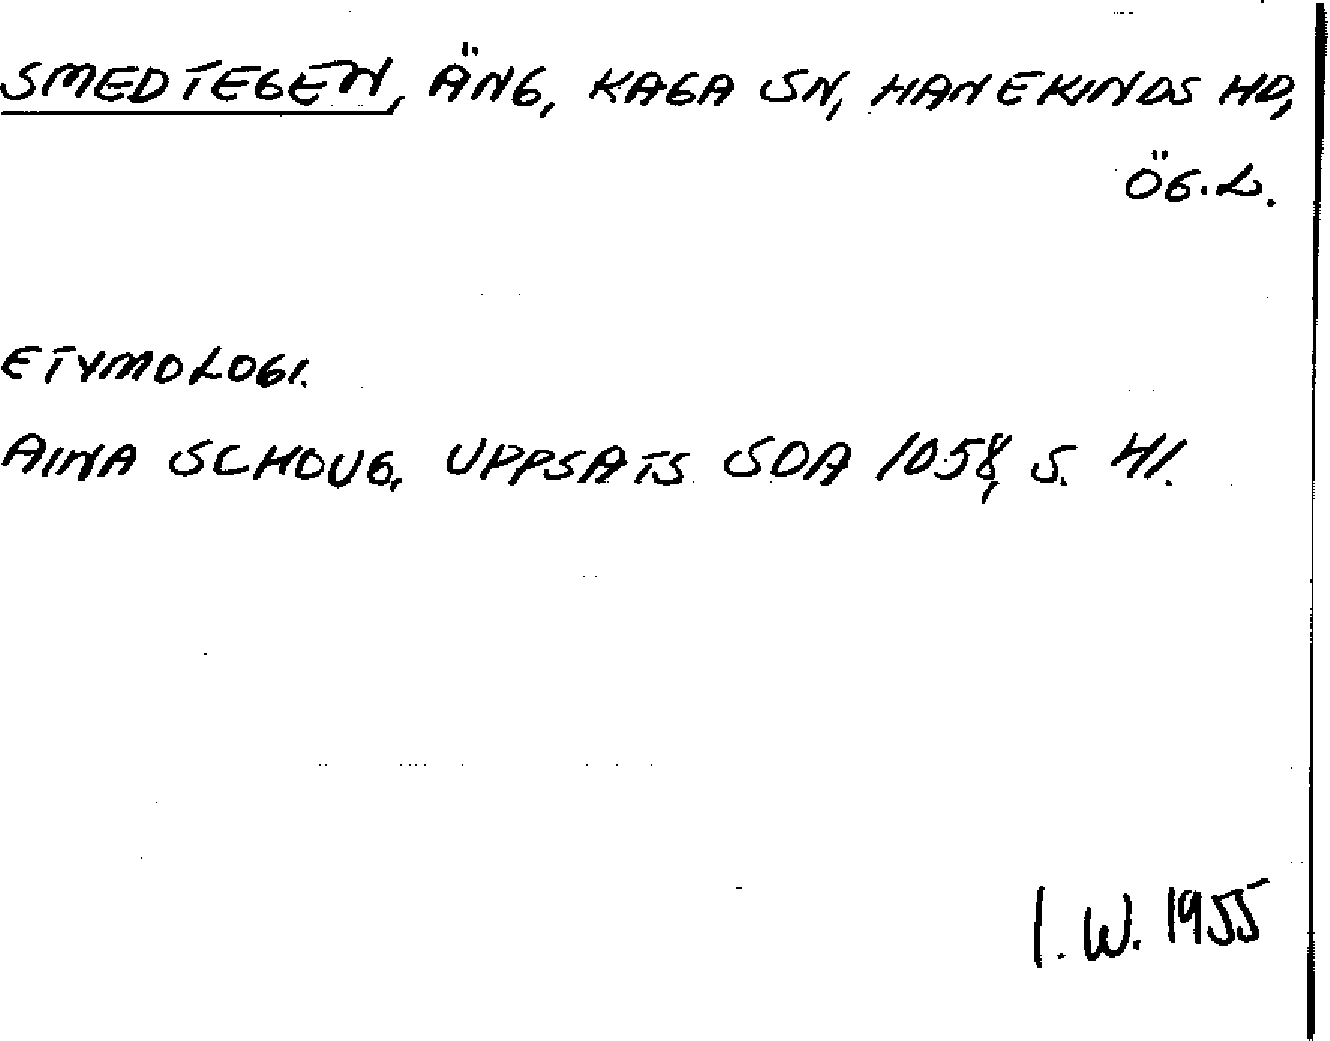 SMEDTEGEN, ÄNG, KAGA SN, HANEKINDS HD,
ÖG. L.
ETYMOLOGI.
AINA SCHOUG, UPPSATS SOA 1058, S. 41.
I. W. 1955